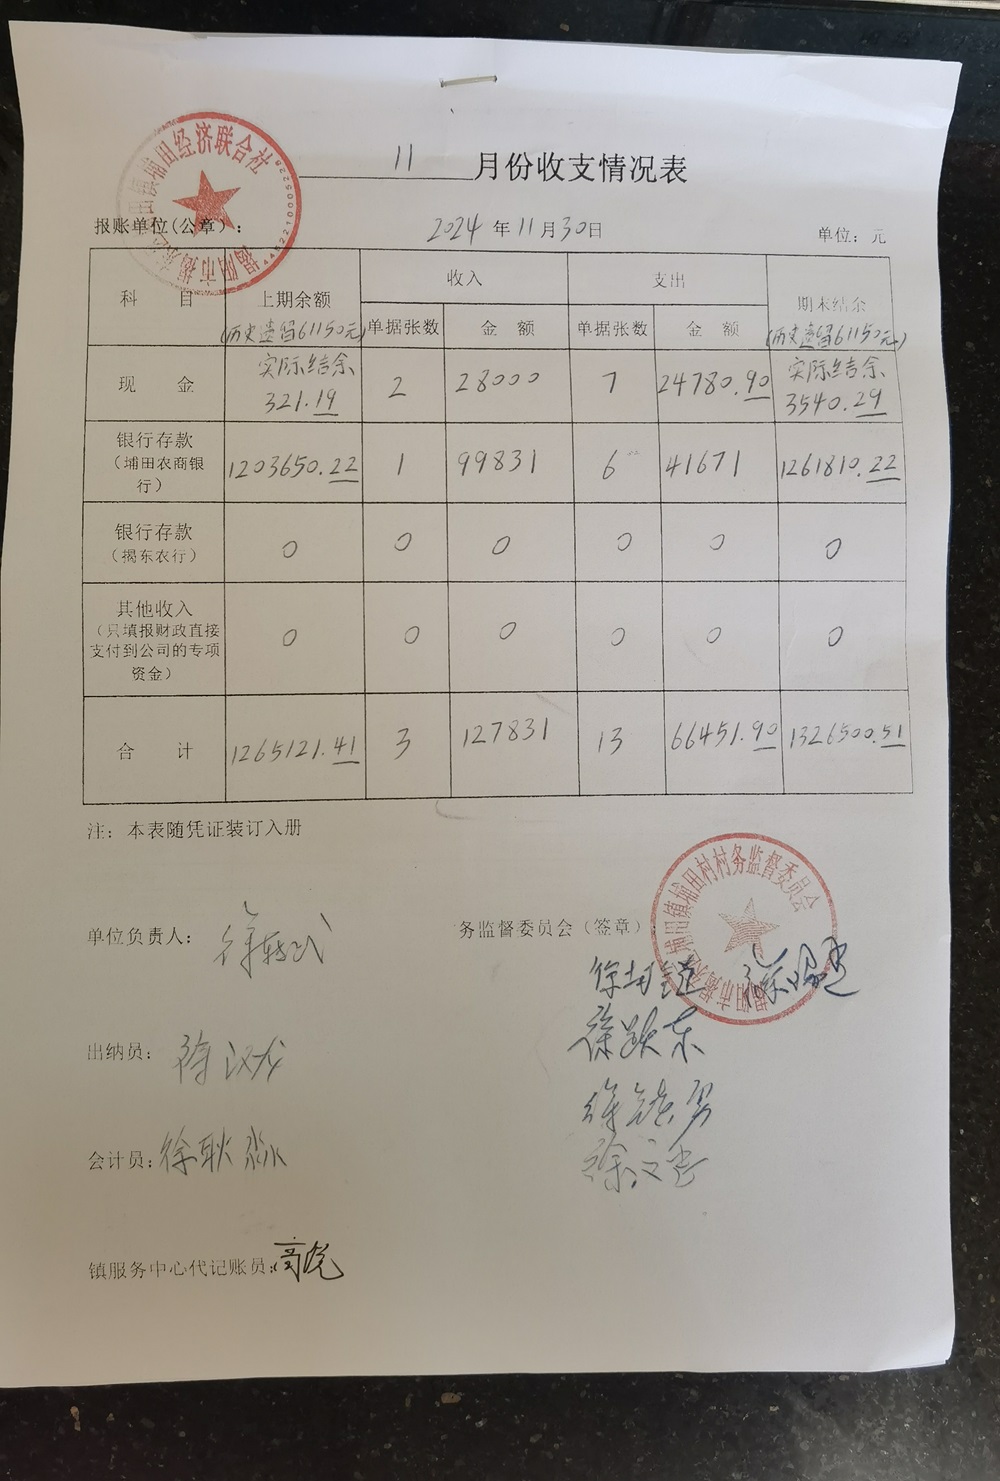 11月份收支情况表
报账单位(公章): 2024年11月30日 单位：元
科 目 上期余额 收入 支出 期末结余
(历史遗留61150元) 单据张数 金 额 单据张数 金 额 (历史遗留61150元)
现 金 实际结余 321.19 2 28000 7 24780.90 实际结余 3540.29
银行存款
（埔田农商银行） 1203650.22 1 99831 6 41671 1261810.22
银行存款
（揭东农行） 0 0 0 0 0 0
其他收入
（只填报财政直接
支付到公司的专项
资金） 0 0 0 0 0 0
合 计 1265121.41 3 127831 13 66451.90 1326500.51
注：本表随凭证装订入册
单位负责人： 务监督委员会（签章）
徐跃东
出纳员：
会计员: 徐耿淼
镇服务中心代记账员:
埔田经济联合社
埔田镇埔田村村务监督委员会